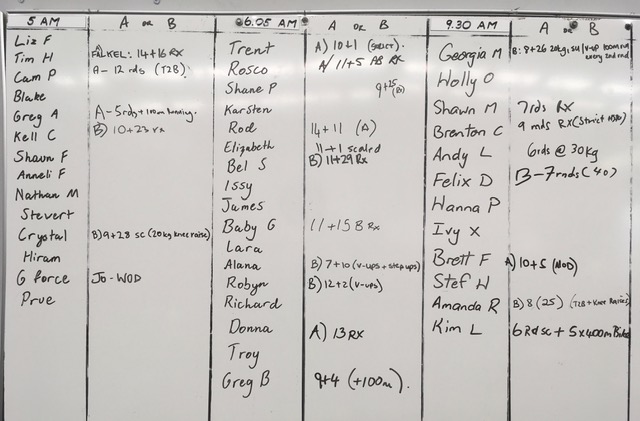 5 AM
A OR B
Liz F
Tim H
FALKEL: 14+16 RX
Cam P
A- 12 rds (T2B)
Blake
Greg A
A-5rds+100m running.
Kell C
B) 10+23 rx
Shaun F
Anneli F
Nathan M
Stevert
Crystal
B)9+28 sc (20kg knee raise)
Hiram
G force
Jo-WOD
Prue
6.05 AM
A OR B
Trent
A) 10+1 (STRICT).
Rosco
A/ 11+5 AB RX
Shane P
9+25 (B)
Karsten
Rod
14+11 (A)
Elizabeth
11+1 scaled
Bel S
B) 11+29 Rx
Issy
James
Baby G
11+15 B Rx
Lara
Alana
B) 7+10 (v-ups + step ups)
Robyn
B) 12+2 (v-ups)
Richard
Donna
A) 13 RX
Troy
Greg B
9+4 (+100m).
9.30 AM
A OR B
Georgia M
B: 8+26 20kg, su/v-up 100m run
every 2nd rnd
Holly O
Shawn M
7rds RX
Brenton C
9 rnds RX (Strict HSPU)
Andy L
6rds @ 30kg
Felix D
B-7rnds (40)
Hanna P
Ivy X
Brett F
A) 10+5 (MOD)
Stef W
Amanda R
B) 8 (25) (T2B + Knee Raises)
Kim L
6 Rd sc + 5x400m Bike